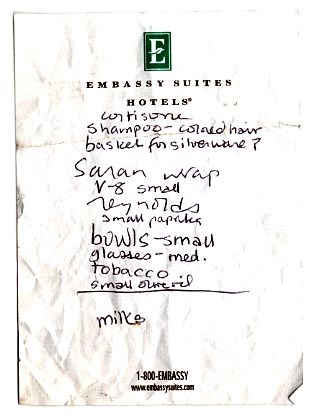 E
EMBASSY SUITES
HOTELS®
cortisone
shampoo - colored hair
basket for silverware?
Saran wrap
V-8 small
reynolds
small paprika
bowls - small
glasses - med.
tobacco
small olive oil
milk
1-800-EMBASSY
www.embassysuites.com